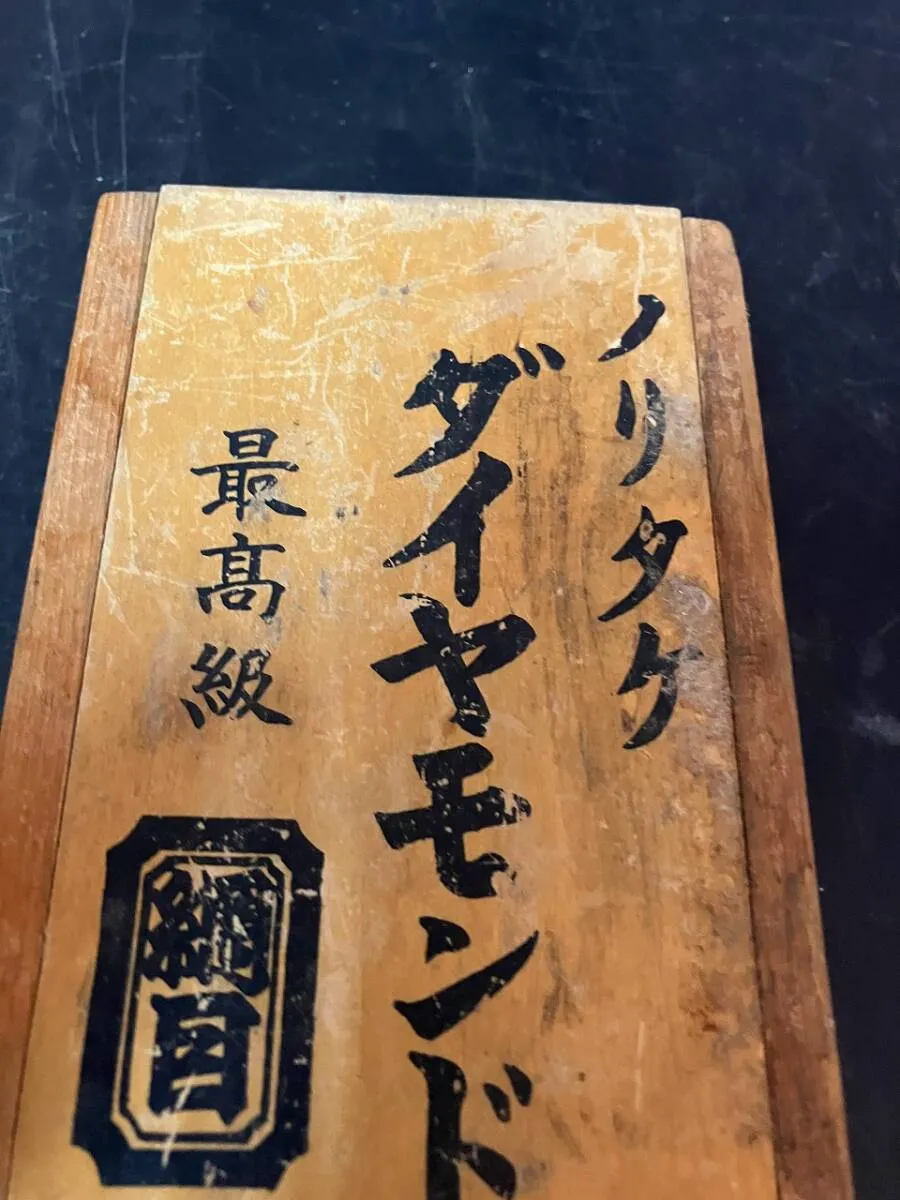 ノリタケ
ダイヤモンド
最髙級